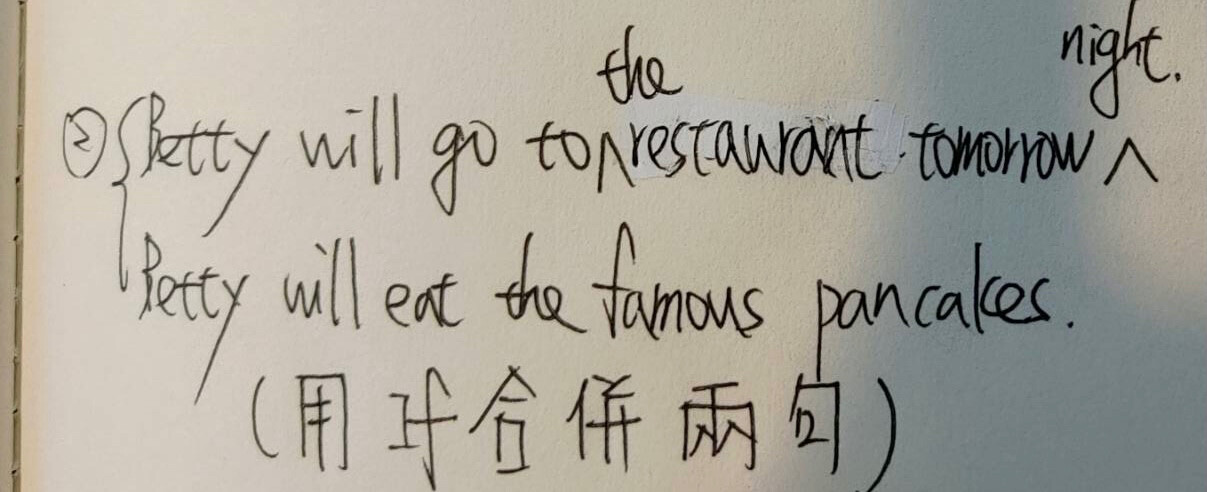 ② Betty will go to the restaurant tomorrow night.
Betty will eat the famous pancakes.
(用 if 合併兩句)